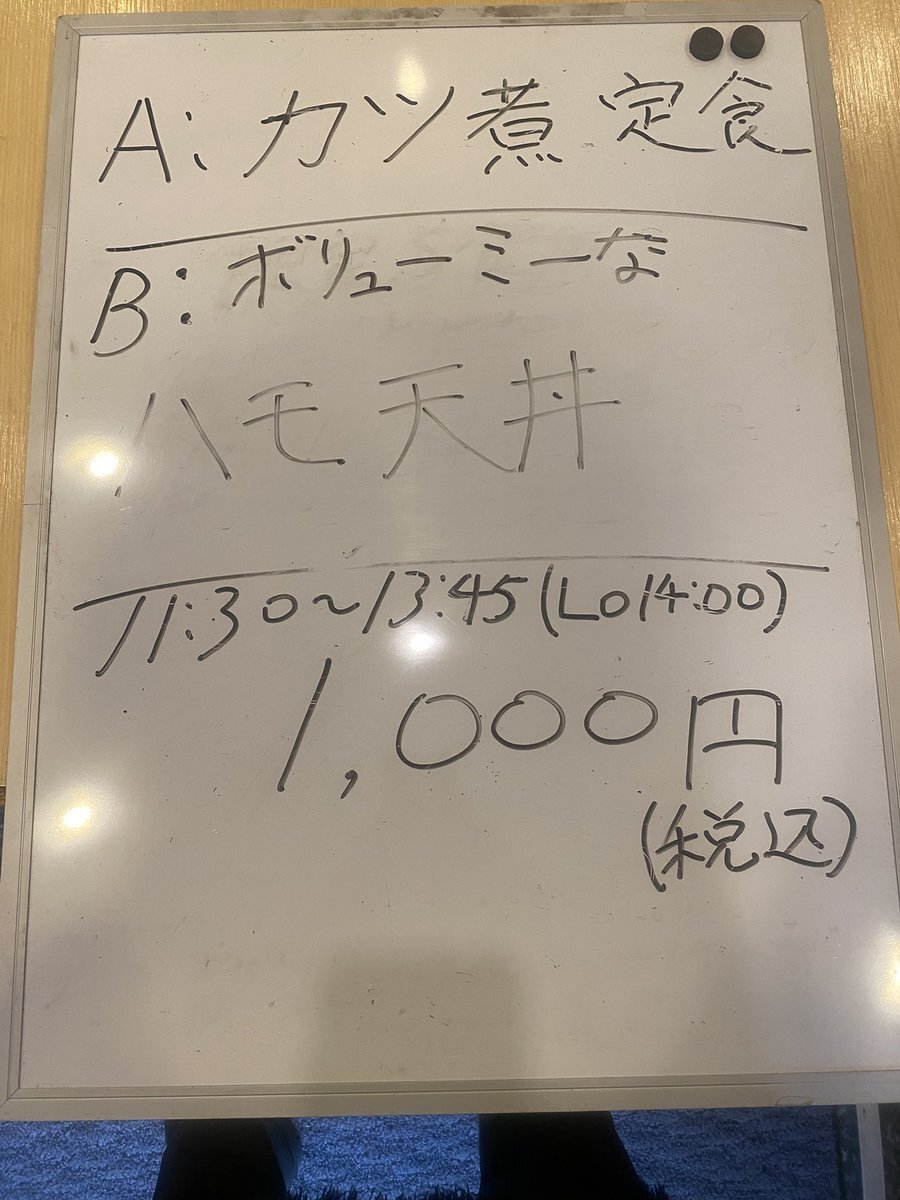 A: カツ煮定食
B: ボリューミーな
ハモ天丼
11:30~13:45(LO14:00)
1,000円
(税込)